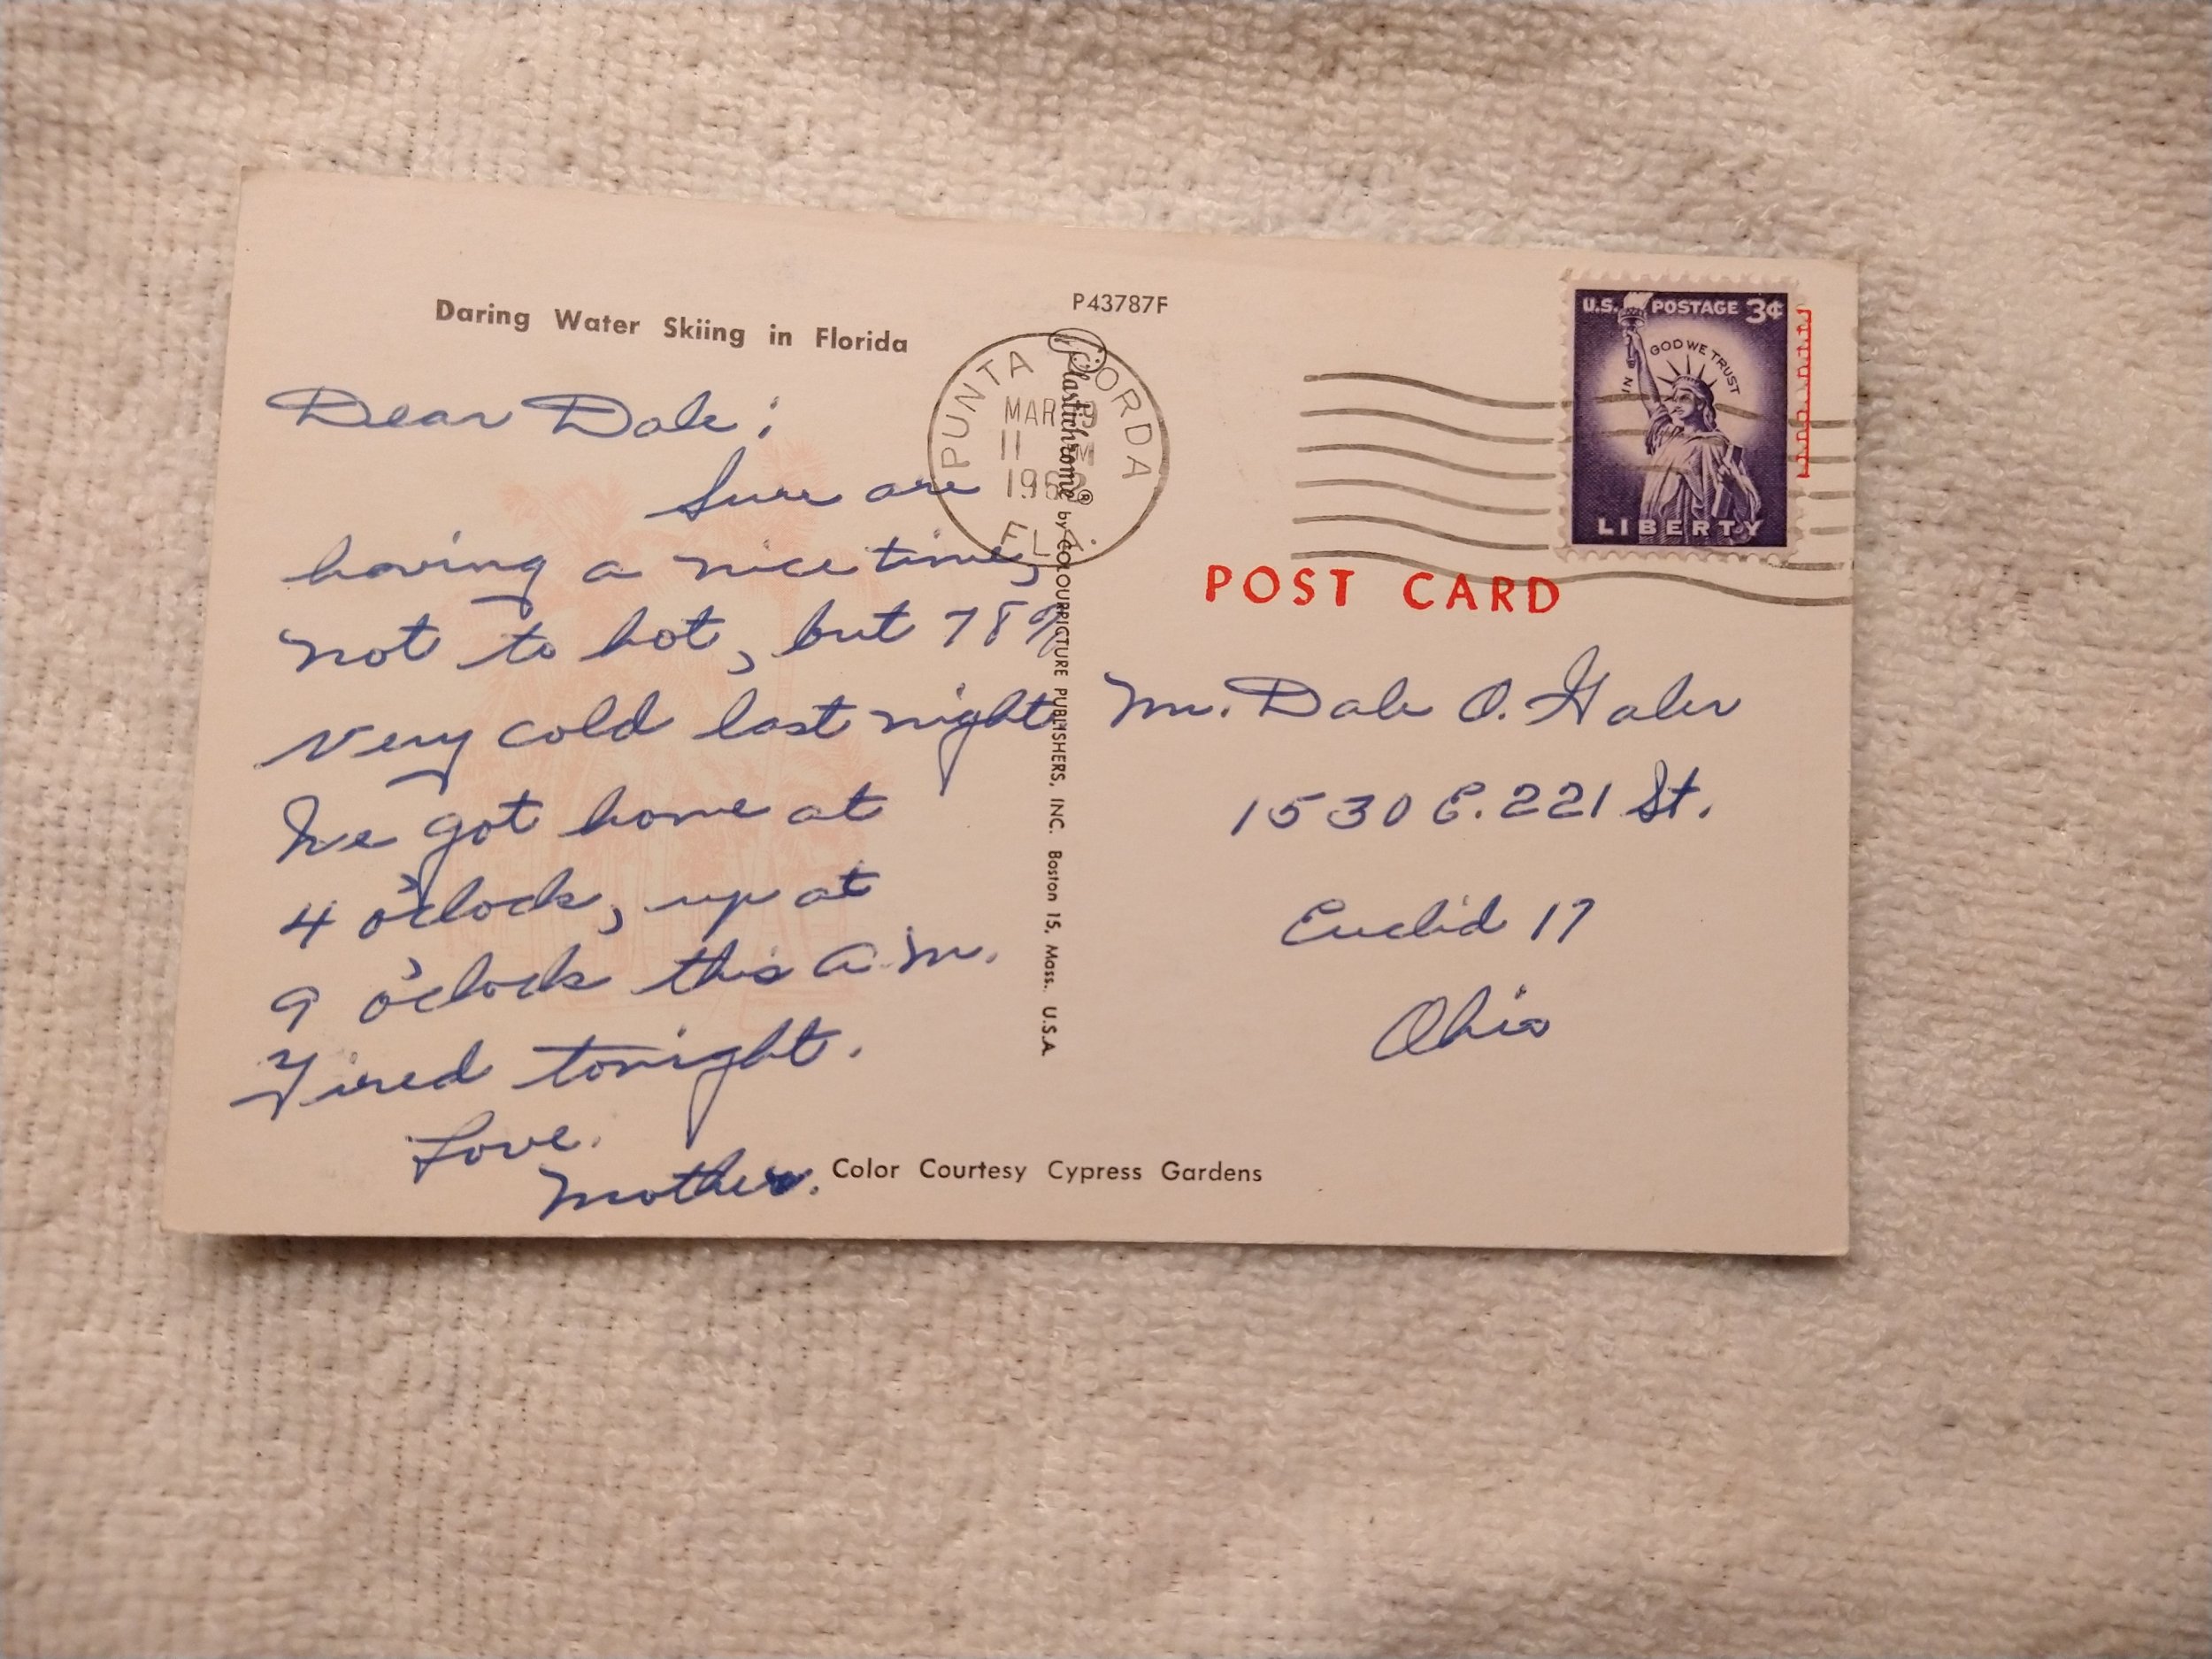 Daring Water Skiing in Florida
P43787F
Dear Dale;
Sure are
having a nice time,
not to hot, but 78°
very cold last night
We got home at
4 o'clock, up at
9 o'clock this a.m.
Tired tonight.
Love.
Mother.
Color Courtesy Cypress Gardens
PUNTA GORDA
MAR
11
FLA.
Plastichrome® by COLOURPICTURE PUBLISHERS, INC. Boston 15, Mass., U.S.A.
U.S. POSTAGE 3¢
IN GOD WE TRUST
LIBERTY
POST CARD
Mr. Dale O.
1530 E. 221 St.
Euclid 17
Ohio